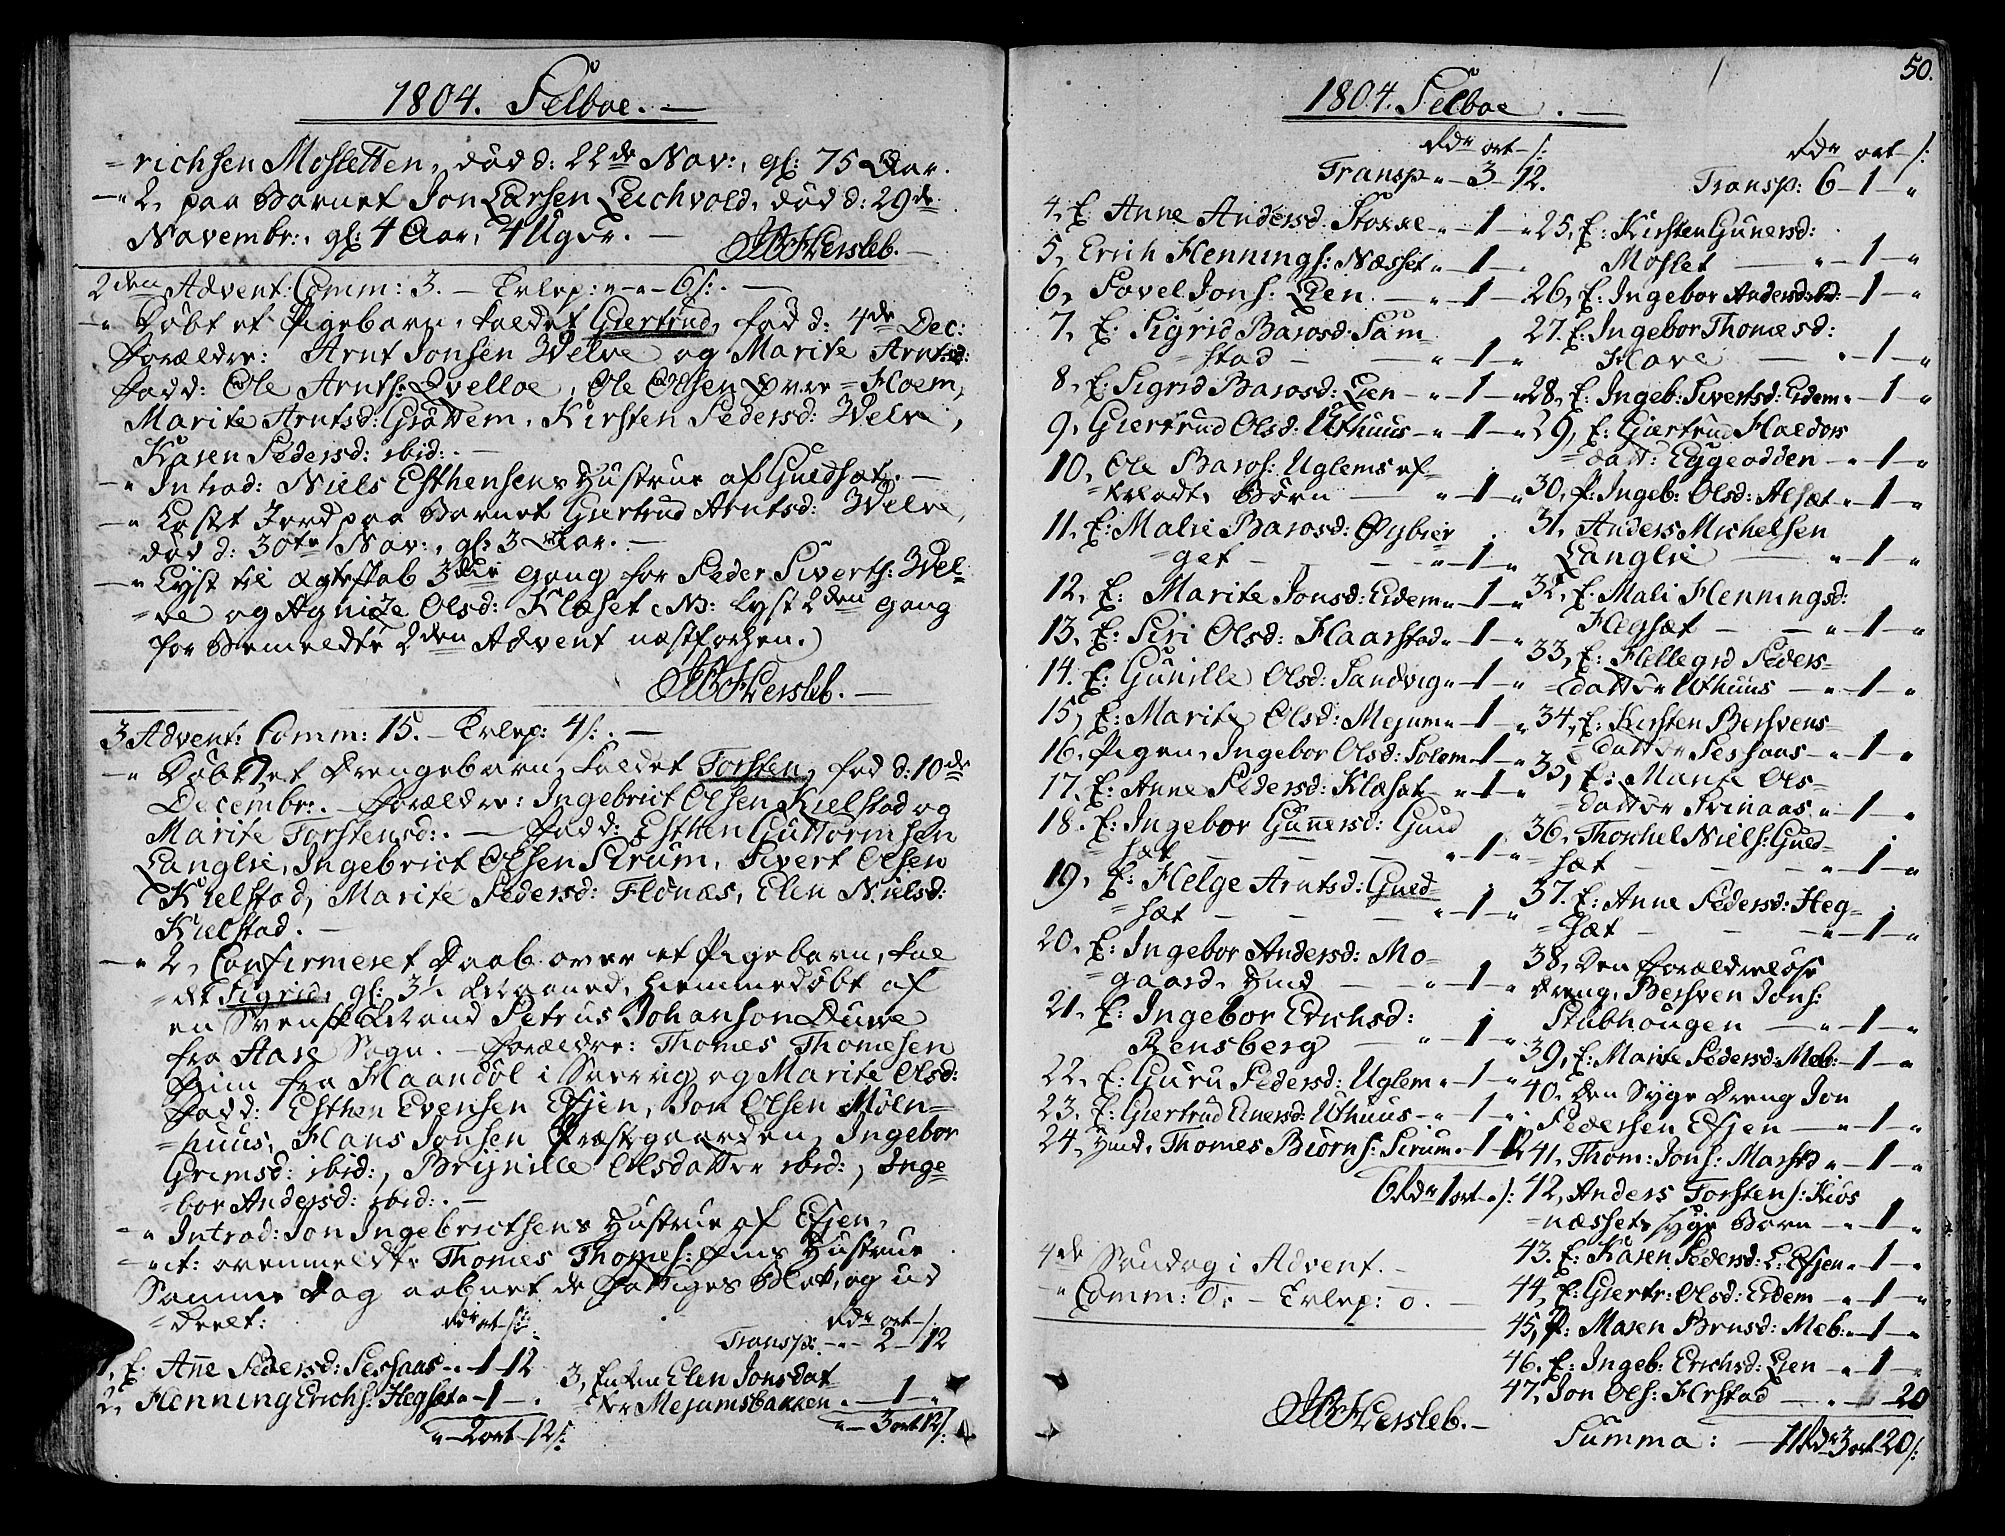 1804. Selboe. —
=richsen Mosletten, død d: 22de Nov:, gl: 75 Aar.
—" 2, paa Barnet Jon Larsen Leichvold, død d: 29de
Novembr:, gl: 4 Aar, 4 Uger. —
JBHersleb. —
2den Advent: Comm: 3. — Erlep: "—"—6 s:. —
—" Døbt et Pigebarn, kaldet Giertrud, fød d: 4de Dec:
Forældre: Arnt Jonsen Welve og Marite Arntsd:
Fadd: Ole Arnts: Qvelloe, Ole Olsen Øvre=Hoem,
Marite Arntsd: Grøttem, Kirsten Pedersd: Welve,
Karen Pedersd: ibid:. —
—" Introd: Niels Esthensens Hustrue af Guldsæt. —
—" Kastet Jord paa Barnet Giertrud Arntsd: Welve,
død d: 30te Nov:, gl: 3 Aar. —
—" Lyst til Ægteskab 3die Gang for Peder Siverts: Wel=
=ve og Agnize Olsd: Klæset (NB: lyst 2den Gang
for bemeldte 2den Advent næstforhen.)
JBHersleb. —
3 Advent: Comm: 15. — Erlep: 4 s:. —
—" Døbt et Drengebarn, kaldet Torsten, fød d: 10de
Decembr:. — Forældre: Ingebrict Olsen Kielstad og
Marite Torstensd:. — Fadd: Esthen Guttormsen
Langlie, Ingebrict Olsen Sirum, Sivert Olsen
Kielstad, Marite Pedersd: Flønæs, Elen Nielsd:
Kielstad. —
—" 2, Confirmeret Daab over et Pigebarn, kal
=det Sigrid, gl: 3½ Maaned, hiemmedøbt af
en Svensk Mand Petrus Johanson Duve
fra Aase Sogn. — Forældre: Thomes Thomesen
Fiim fra Haandøl i Sverrig og Marite Olsd:
Fadd: Esthen Evensen Efjen, Jon Olsen Møln=
=huus, Hans Jonsen Præstgaarden, Ingebor
Grimsd: ibid:, Brynille Olsdatter ibid:, Inge=
=bor Andersd: ibid:. —
—" Introd: Jon Ingebrictsens Hustrue af Efjen,
—" it: ovenmeldte Thomes Thomes: Fims Hustrue
Samme Dag aabnet de Fattiges Blok, og ud
=deelt:
Rdr ort s:
1, E. Anne Pedersd: Seshaas "—1—12
2, Henning Erichs: Hegset "—1—"
"—2 ort—12 s:
Rdr ort s:
Transp: "—2—12
3, Enken Elen Jonsdat=
=ter Mejumsbakken "—1—"
"—3 ort 12 s:
50.
1804. Selboe. —
Rdr ort s:
Transp "—3—12.
4, E. Anne Andersd: Stokke "—1—"
5, Erich Hennings: Næsset "—1—"
6, Povel Jons: Lien — "—1—"
7, E. Sigrid Barosd: Sam
=stad — "—1—"
8, E: Sigrid Barosd: Lien — "—1—"
9, Giertrud Olsd: Uthuus — "—1—"
10, Ole Baros: Uglems ef=
=terladte Børn — "—1—"
11, E: Malie Barosd: Øybier
=get — "—1—"
12, E: Marite Jonsd: Eidem "—1—"
13, E: Siri Olsd: Haarstad "—1—"
14. E: Gunille Olsd: Sandvig "—1—"
15, E: Marite Olsd: Mejum "—1—"
16. Pigen, Ingebor Olsd: Solem "—1—"
17, E: Anne Pedersd: Klæset — "—1—"
18. E: Ingebor Gunnersd: Guld
=sæt — "—1—"
19, E: Helge Arntsd: Guld=
=sæt — "—1—"
20, E: Ingebor Andersd: Mo=
=gaard, Huus — "—1—"
21, E: Ingebor Erichsd:
Rensberg — "—1—"
22, E: Guru Pedersd: Uglem "—1—"
23, E: Giertrud Einersd: Uthuus — "—1—"
24, Huus, Thomes Biørns: Sirum "—1—"
6 Rdr 1 ort " s:
4de Søndag i Advent. —
—" Comm: 0. — Erlep: 0. —
JBHersleb. —
Rdr ort s:
Transp: 6—1—"
25, E: Kirsten Gunersd:
Moslet — "—1—"
26, E: Ingebor Andersd: ibid: —1—"
27. E: Ingebor Thomesd:
Hove — "—1—"
28, E: Ingeb: Sivertsd: Eidem "—1—"
29, E: Giertrud Haldors
=datt: Eggeodden — "—1—"
30, P: Ingeb: Olsd: Alsæt "—1—"
31. Anders Michelsen
Langlie — "—1—"
32, E: Mali Henningsd:
Hegsæt — "—1—"
33, E: Hellegrd Peders=
=datter Uthuus — "—1—"
34, E: Kirsten Bersvens=
=datter Seshaas — "—1—"
35, E: Marite Ols=
=datter Svinaas "—1—"
36, Thorkel Niels: Guld=
=sæt — "—1—"
37. E: Anne Pedersd: Heg=
=sæt — "—1—"
38, Den forældreløse
Dreng, Bersven Jons:
Stubhougen — "—1—"
39, E: Marite Pedersd: Meb: —1—"
40, Den syge Dreng Jon
Pedersen Efjen — "—1—"
41, Thom: Jons: Marsta "—1—"
42, Anders Torstens: Kiøs
=næssets syge Børn — "—1—"
43. E: Karen Pedersd: L: Efjen "—1—"
44, E: Giertr: Olsd: Eidem — "—1—"
45, P: Maren Brunsd: Meb: "—1—"
46. E: Ingeb: Erichsd: Lien — "—1—"
47. Jon Ols: Harstad — "—"—20
Summa: — 11 Rdr 3 ort 20 s: